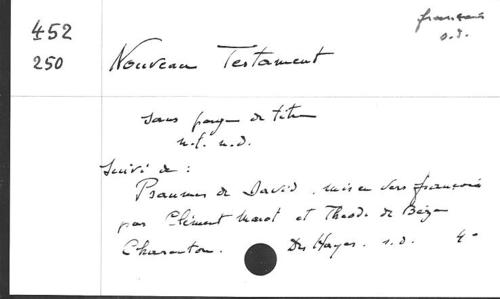 452
250
français
s.d.
Nouveau Testament
sans page de titre
n.l. n.d.
suivi de :
Psaumes de David, mis en vers françois
par Clément Marot et Theod. de Bèze
Charenton. Des Hayes. s.d. 4°